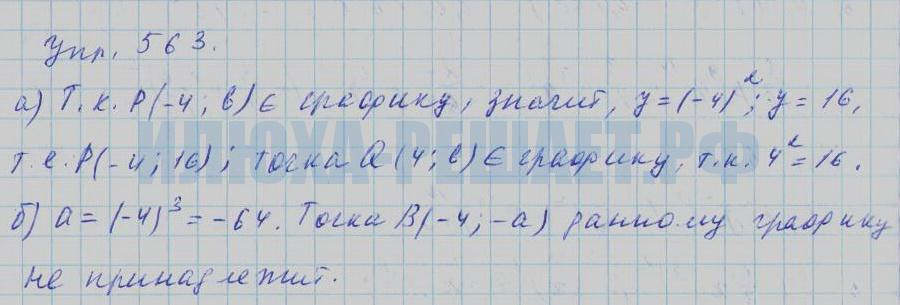 Упр. 563.
а) Т.к. P(-4; b) ∈ графику, значит, y = (-4)²; y = 16,
т.е. P(-4; 16); точка Q (4; b) ∈ графику, т.к. 4² = 16.
ИЛЮХА-РЕШАЕТ.РФ
б) a = (-4)³ = -64. Точка B(-4; -a) данному графику
не принадлежит.